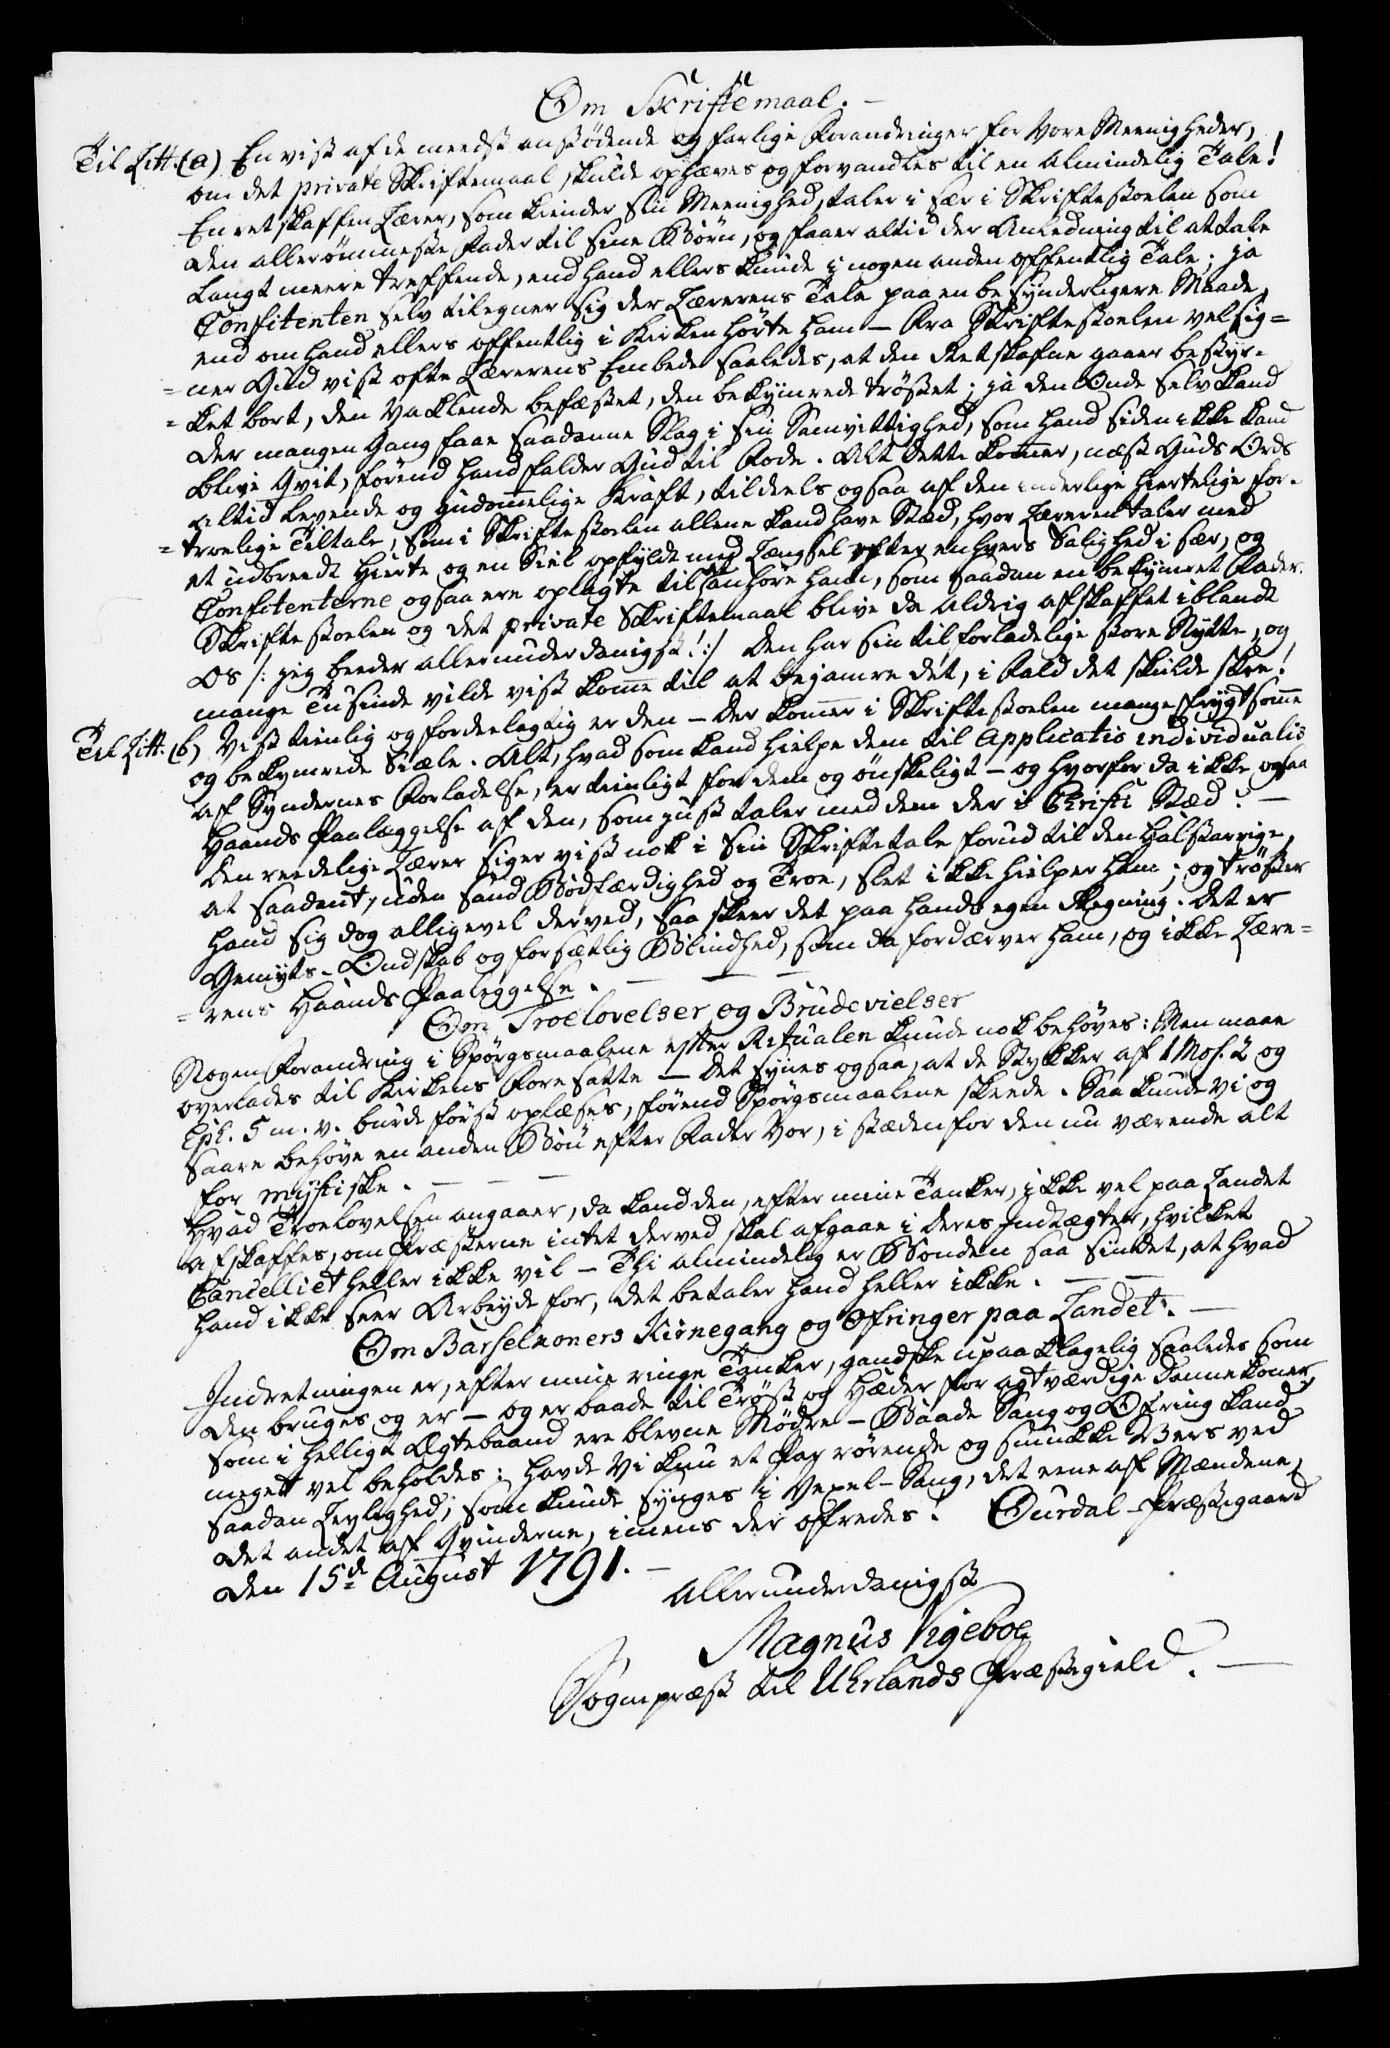 Om Skriftemaal. –
Til Litt. (a) En vist af de meedst anstödende og farlige Forandringer for vore Meenigheder,
om det private Skriftemaal skulde ophæves og forvandles til en almindelig Tale!
En retskaffen Lærer, som kiender sin Meenighed, taler i sær i Skriftestoelen som
den allerömmeste Fader til sine Börn, og faaer altid der Anledning til at tale
langt meere treffende, end hand ellers kunde i nogen anden offentlig Tale; ja
Confitenten selv tilegner sig der Lærerens Tale paa en besynderligere Maade,
end om hand ellers offentlig i Kirken hörte ham – Fra Skriftestoelen velsig=
=ner Gud vist ofte Lærerens Embede saaledes, at den Retskafne gaaer bestyr-
=ket bort, den vaklende befæstet, den bekymrede tröstet; ja den Onde selv kand
der mangen Gang faae saadanne Slag i sin Samvittighed, som hand siden ikke kand
blive qvit, förend hand falder Gud til Fode. Alt dette kommer, næst Guds Ords
altid levende og gudommelige Kraft, tildeels ogsaa af den inderlige hiertelige for-
=troelige Tiltale, som i Skriftestoelen allene kand have Stæd, hvor Læreren taler med
et udbreedt Hierte og en Siel opfyldt med Længsel efter enhvers Salighed i sær, og
Confitenterne ogsaa ere oplagte til at anhöre ham, som saadan en bekymret Fader.
Skriftestoelen og det private Skriftemaal blive da aldrig afskaffet iblandt
os /: jeg beeder allerunderdanigst! :/ Den har sin tilforladelige store Nytte, og
mange Tusinde vilde vist komme til at bejamre det, i Fald det skulde skee!
Til Litt. (b) Vist tienlig og fordeelagtig er den – Der kommer i Skriftestoelen mange frygtsomme
og bekymrede Siæle. Alt, hvad som kand hielpe dem til applicatio individualis
af Syndernes Forladelse, er tienligt for dem og önskeligt – og hvorfor da ikke ogsaa
Haands Paalæggelse af den, som just taler med dem der i Christi Stæd? –
Den reedelige Lærer siger vist nok i sin Skriftetale forud til den Halsstarrige,
at saadant, uden sand Bodfærdighed og Troe, slet ikke hielper ham; og tröster
hand sig dog alligevel derved, saa skeer det paa hands egen Regning. Det er
Gemyts-Ondskab og forsætlig Blindhed, som da fordærver ham, og ikke Lære=
=rens Haands Paaleggelse. – – –
Om Troelovelser og Brudevielser
Nogen Forandring i Spörgsmaalene efter Ritualen kunde nok behöves: Men maae
overlades til Kirkens Foresatte – Det synes ogsaa, at de Stykker af 1 Mos. 2 og
Eph. 5 m. v. burde först oplæses, förend Spörgsmaalene skeede. Saa kunde vi og
saare behöve en anden Bön efter Fader Vor, i stæden for den nu værende alt
for mystiske. – – –
Hvad Troelovelsen angaaer, da kand den, efter mine Tanker, ikke vel paa Landet
afskaffes, om Præsterne intet derved skal afgaae i deres Indtægter, hvilket
Cancelliet heller ikke vil – Thi almindelig er Bonden saa sindet, at hvad
hand ikke seer Arbeyde for, det betaler hand heller ikke. – –
Om Barselkoners Kirkegang og Ofringer paa Landet. –
Indretningen er, efter mine ringe Tanker, gandske upaaklagelig saaledes som
den bruges og er – og er baade til Tröst og Hæder for agtværdige Dannekoner,
som i helligt Ægtebaand ere blevne Mödre – Baade Sang og Ofring kand
meget vel beholdes: havde vi kun et Par rörende og smukke Vers ved
saadan Leylighed, som kunde synges i Vexel-Sang, det eene af Mændene,
det andet af Qvinderne, imens der ofredes! Ourdal-Præstegaard
den 15de August 1791. –
Allerunderdanigst
Magnus Vigeboe
Sognepræst til Uhrlands Præstegield. –